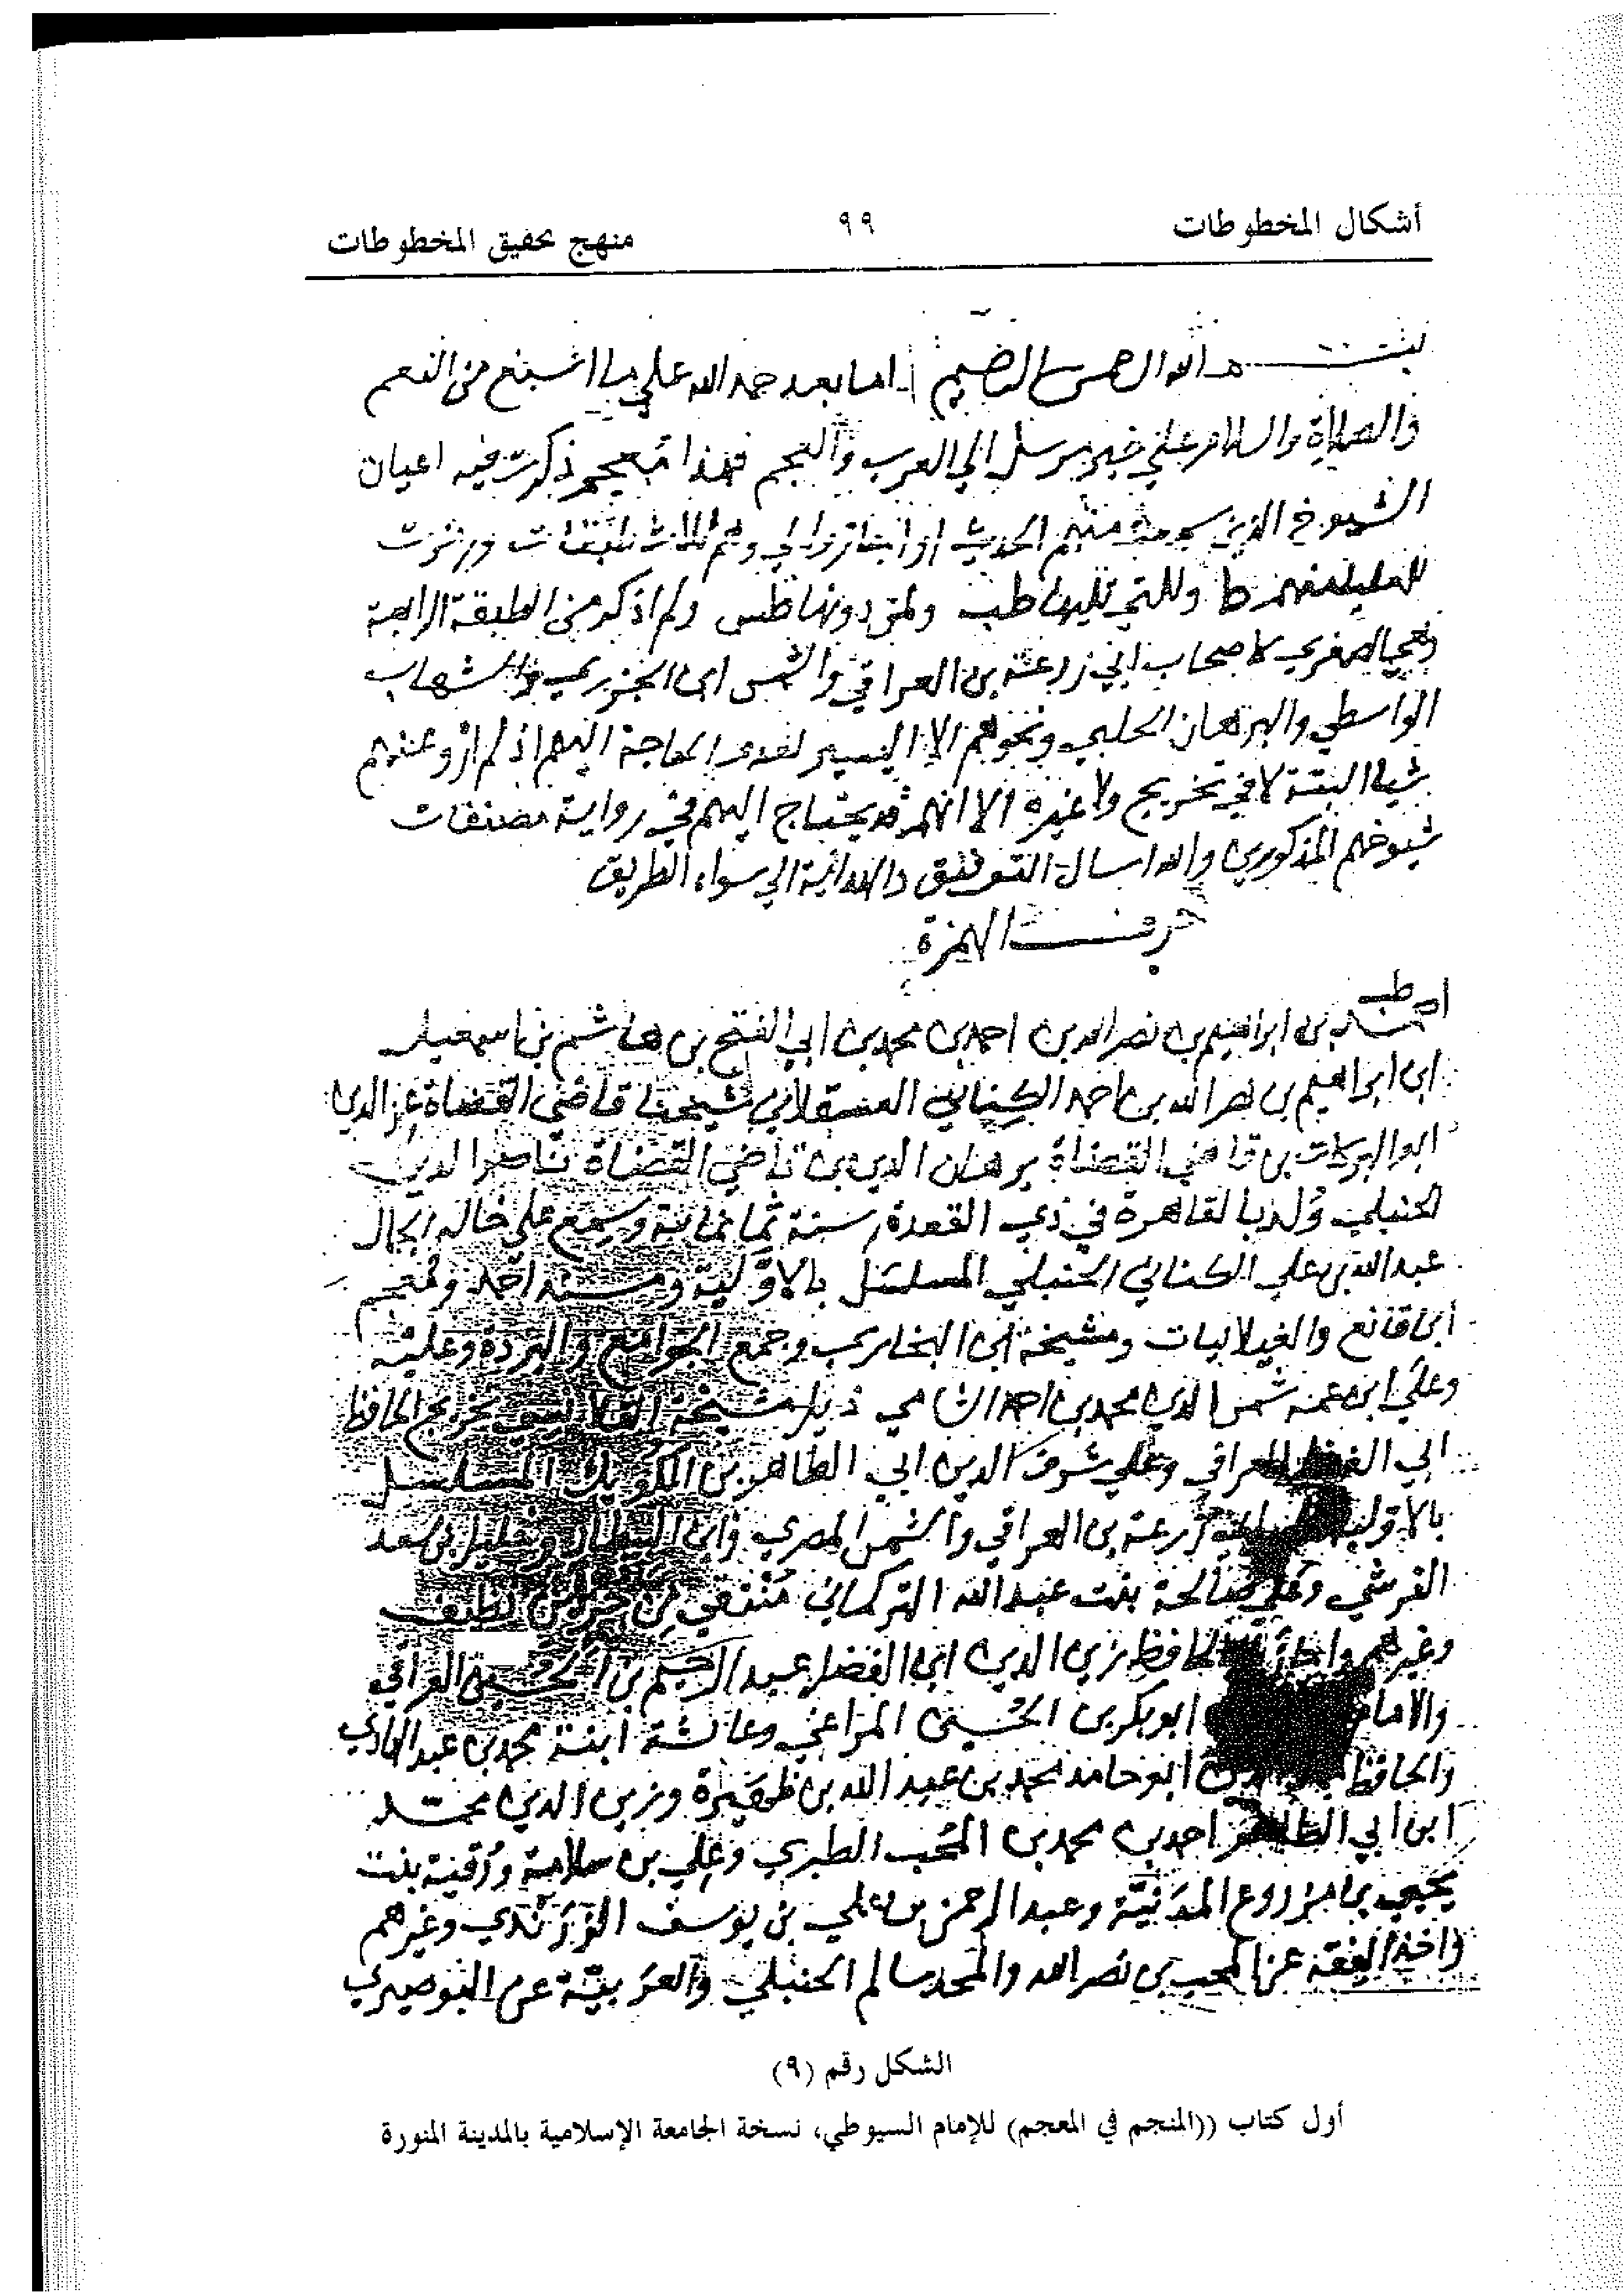 أشكال المخطوطات
٩٩
منهج تحقيق المخطوطات
بسم الله الرحمن الرحيم اما بعد حمد الله على ما اسبغ من النعم
والصلاة والسلام على خير مرسل الي العرب والعجم فهذا معجم ذكرت فيه اعيان
الشيوخ الذين سمعت منهم الحديث او اجازوا لي وهم ثلاث طبقات ورمزت
للعليا منهم ط وللتي تليها طب ولمن دونها طس ولم اذكر من الطبقة الرابعة
وهي الصغري كاصحاب ابي زرعة بن العراقي والشمس ابن الجزري والشهاب
الواسطي والبرهان الحلبي ونحوهم الا اليسير لعدم الحاجة اليهم اذ لم ارو عنهم
شيا البتة لا في تخريج ولا غيره الا انهم قد يحتاج اليهم في رواية مصنفات
شيوخهم المذكورين والله اسال التوفيق والهداية الي سواء الطريق
حرف الهمزة
طب
احمد بن ابراهيم بن نصر الله بن احمد بن محمد بن ابي الفتح بن هاشم بن اسمعيل
ابن ابراهيم بن نصر الله بن احمد الكناني العسقلاني شيخنا قاضي القضاة عز الدين
ابو البركات بن قاضي القضاة برهان الدين بن قاضي القضاة ناصر الدين
الحنبلي ولد بالقاهرة في ذي القعدة سنة ثمانمائة وسمع علي خاله الجمال
عبد الله بن علي الكناني الحنبلي المسلسل بالاولية ومسند احمد ومعجم
ابن قانع والغيلانيات ومشيخة ابن البخاري وجمع الجوامع والبردة وعليه
وعلي ابن عمه شمس الدين محمد بن احمد الشامي ذيل مشيخة القلانسي تخريج الحافظ
ابي الفضل العراقي وعلي شرف الدين ابي الطاهر بن الكويك المسلسل
بالاولية زرعة بن العراقي والشمس المصري وابن البيطار وخليل بن سعد
القرشي وعلي صالحة بنت عبد الله التركماني منتقي من لطيف
وغيرهم واجاز الحافظ زين الدين ابي الفضل عبد الرحيم بن الحسين العراقي
والامام ابو بكر بن الحسين المراغي وعائشة ابنة محمد بن عبد الهادي
والحافظ ابو حامد محمد بن عبد الله بن ظهيرة وزين الدين محمد
ابن ابي الطاهر احمد بن محمد بن المحب الطبري وعلي بن سلامة ورقية بنت
يحيي بن مزروع المدنية وعبد الرحمن بن علي بن يوسف الزرندي وغيرهم
واخذ الفقه عن المحب بن نصر الله والمجد سالم الحنبلي والعربية عن البوصيري
الشكل رقم (٩)
أول كتاب ((المنجم في المعجم) للإمام السيوطي، نسخة الجامعة الإسلامية بالمدينة المنورة